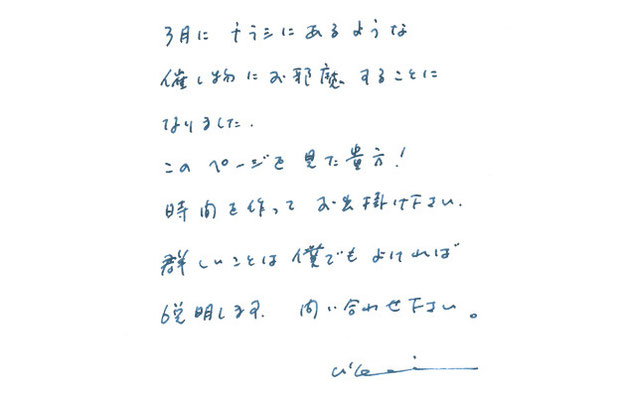 3月に チラシにあるような
催し物にお邪魔することに
なりました.
このページを見た貴方!
時間を作って お出掛け下さい.
群しいことは僕でもよければ
説明します. 問い合わせ下さい。